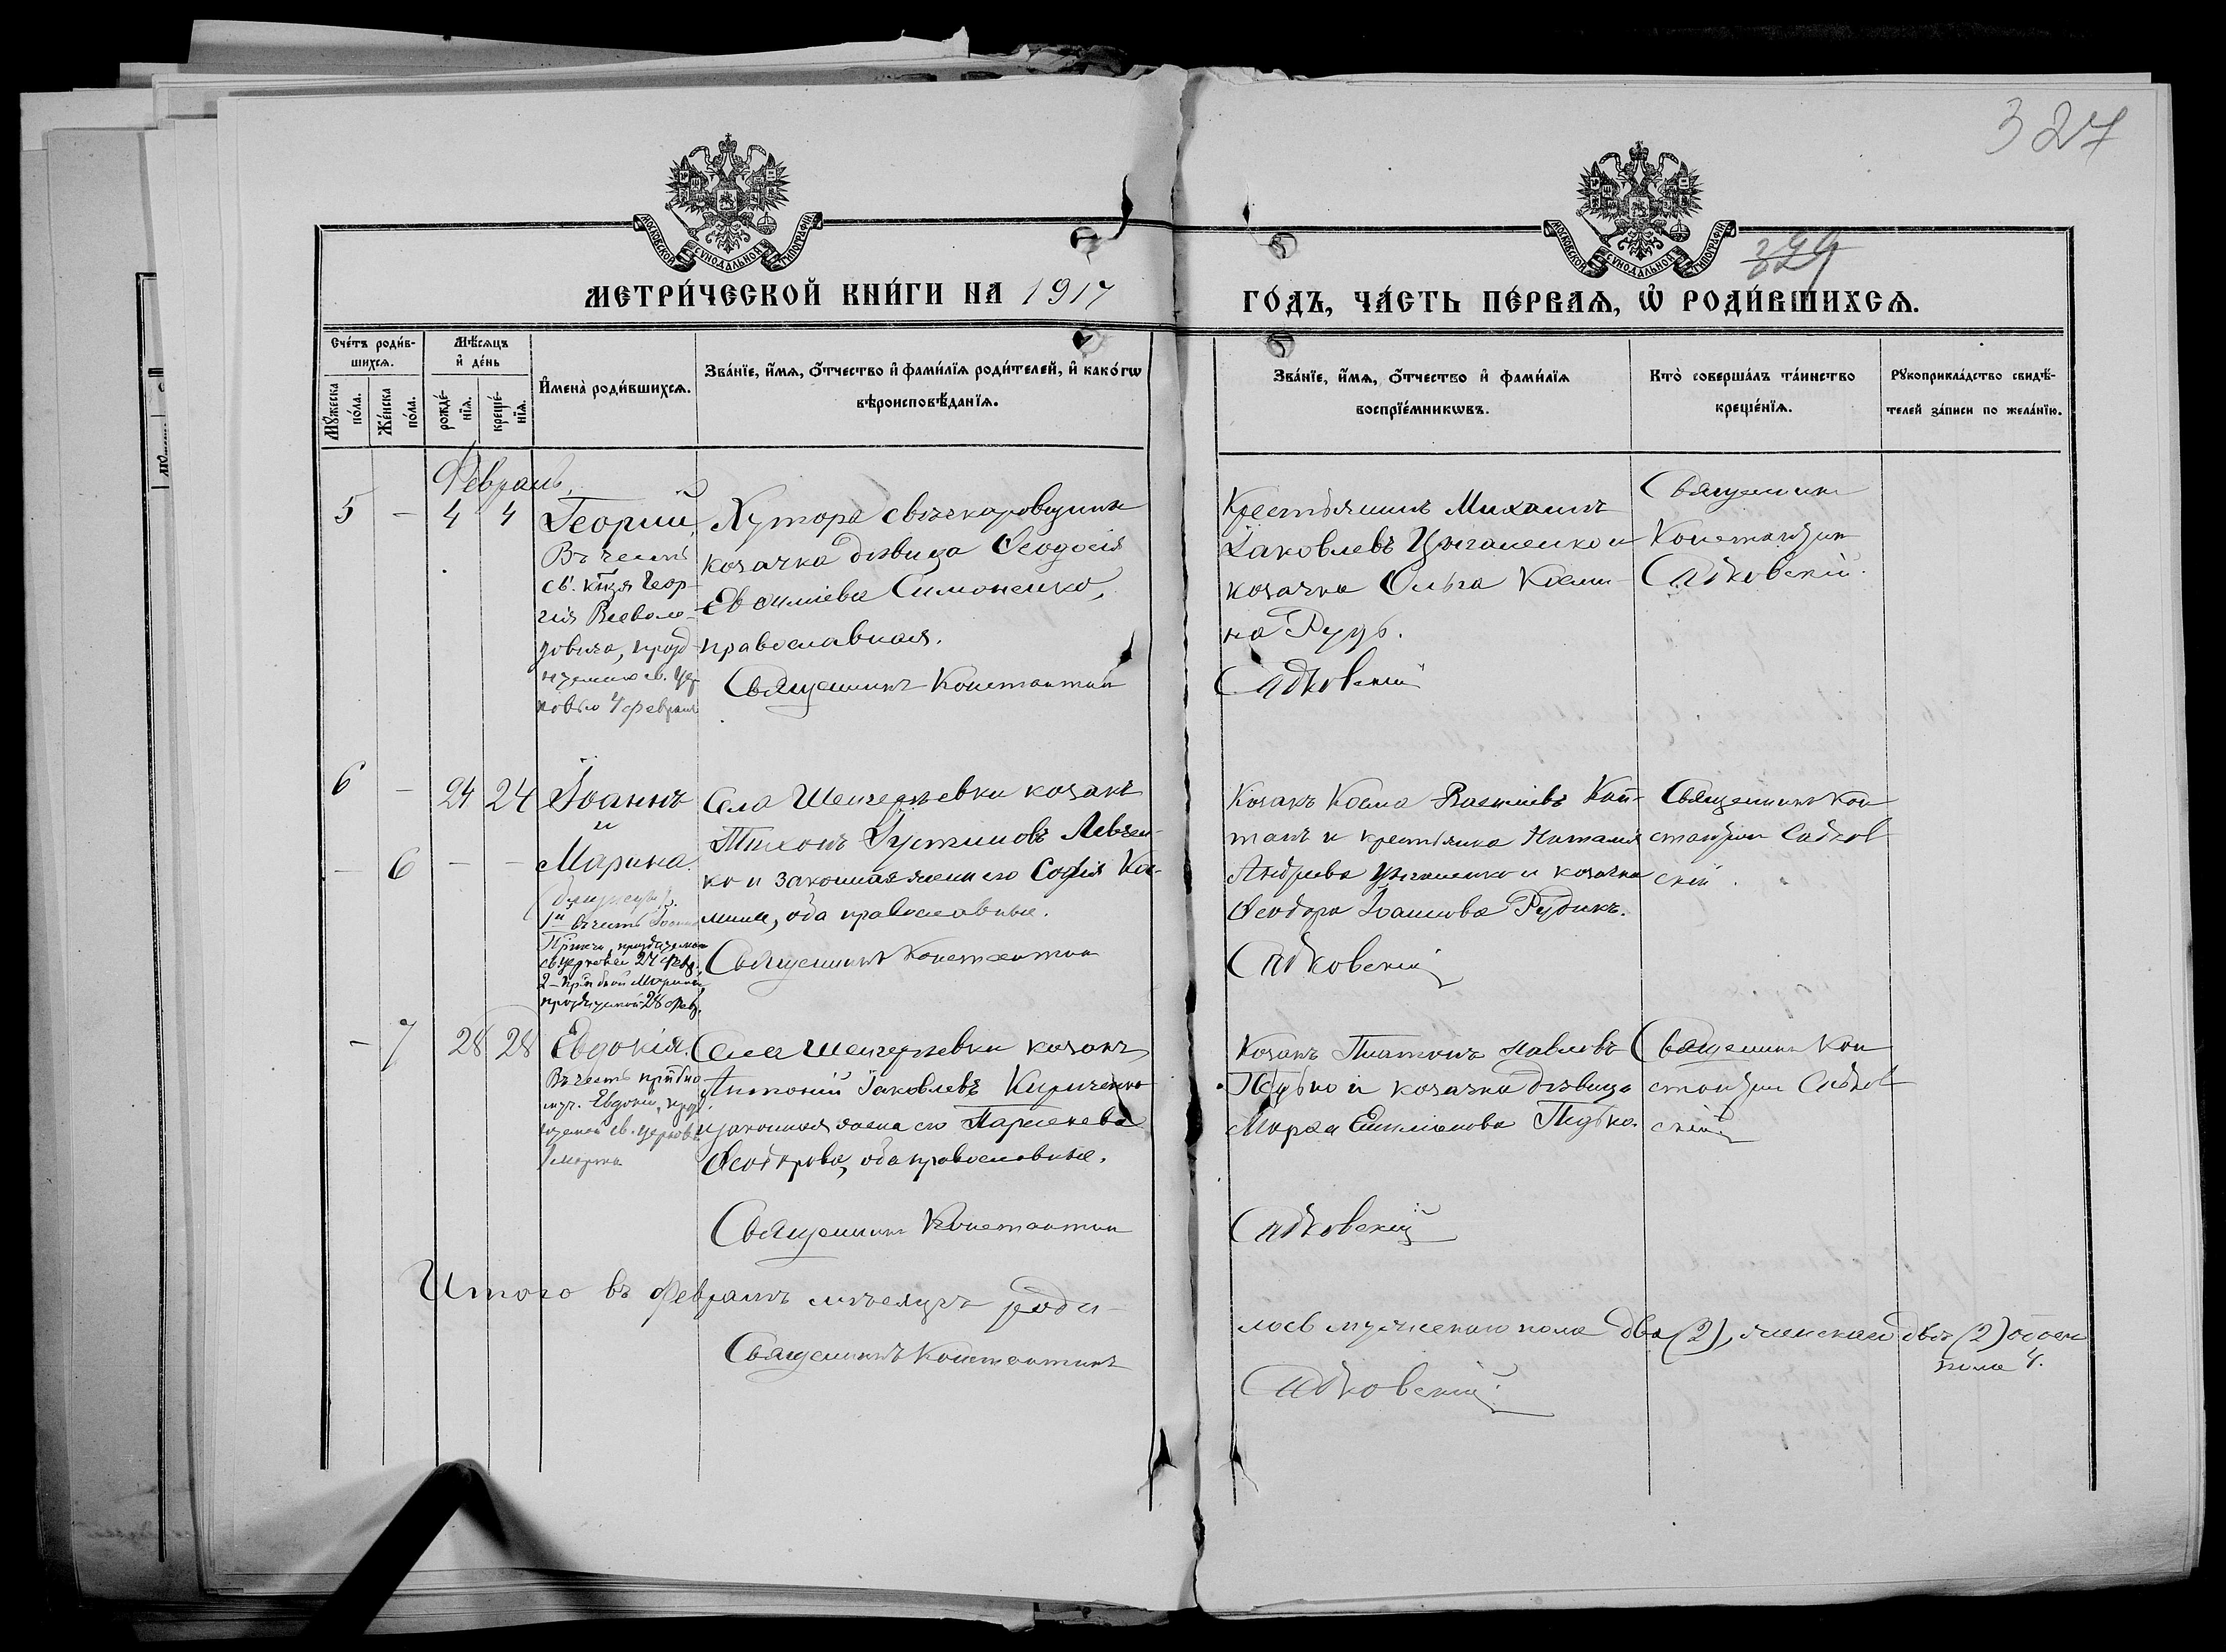 327
МОСКОВСКОЙ СѴНОДАЛЬНОЙ ТИПОГРАФІИ
МОСКОВСКОЙ СѴНОДАЛЬНОЙ ТИПОГРАФІИ
329
МЕТРИ́ЧЕСКОЙ КНИ́ГИ НА 1917
ГО́ДЪ, ЧА́СТЬ ПЕ́РВАѦ, Ѡ҆ РОДИ́ВШИХСѦ.
Сче́тъ роди́в-
шихсѧ.
Мꙋ́жеска
по́ла.
Же́нска
по́ла.
Мѣ́сѧцъ
и҆ де́нь
рожде́-
нїѧ.
креще́-
нїѧ.
И҆мена̀ роди́вшихсѧ.
Зва́нїе, и҆́мѧ, ѻ҆́тчество и҆ фами́лїѧ роди́телей, и҆ како́гѡ
вѣроисповѣ́данїѧ.
Зва́нїе, и҆́мѧ, ѻ҆́тчество и҆ фами́лїѧ
воспрїе́мникѡвъ.
Кто̀ соверша́лъ та́инство
креще́нїѧ.
Рꙋкоприкла́дство свидѣ́-
телей за́писи по жела́нїю.
Февраль
5 - 4 4 Георгій
Въ честь
св. князя Геор-
гія Всеволо-
довича, празд
нуемаго св. Цер
ковью 4 февраля
Хутора
козачка дѣвица Ѳеодосія
Евѳиміева Симоненко,
православная.
Священникъ Константинъ
Крестьянинъ Михаилъ
Іаковлевъ Цыганенко и
козачка Ольга Косми-
на Рудь.
Садковскій
Священникъ
Константинъ
Садковскій.
6 - 24 24 Іоаннъ
и
- 6 - - Марина.
(близнецы).
1й въ честь Іоанна
Пртечи, празднуемаго
св. церковью 24 февр.
2- прпдбной Марины
празднуемой 28 февр.
Села Шенгерѣевки козакъ
Тихонъ Іустиновъ Левчен-
ко и законная жена его Софія Кос-
мина, оба православные.
Священникъ Константинъ
Козакъ Косма Василіевъ Кап-
танъ и крестьянка Наталія
Андреева Цыганенко и козачка
Ѳеодора Іоаннова Рудикъ.
Садковскій
Священникъ Кон
стантинъ Садков
скій.
- 7 28 28 Евдокія.
Въ честь прпбно
муч. Евдокіи, празд
нуемой св. церковью
1 марта
Села Шенгерѣевки козакъ
Антоній Іаковлевъ Кириченко
и законная жена его Параскева
Ѳеодорова, оба православные.
Священникъ Константинъ
Козакъ Платонъ Павловъ
и козачка дѣвица
Марѳа Емиліанова
Садковскій
Священникъ Кон
стантинъ Садков
скій
Итого въ Февралѣ мѣсяцѣ роди-
лось мужескаго пола два (2), женскаго двѣ (2) обоего
пола 4.
Священникъ Константинъ
Садковскій.